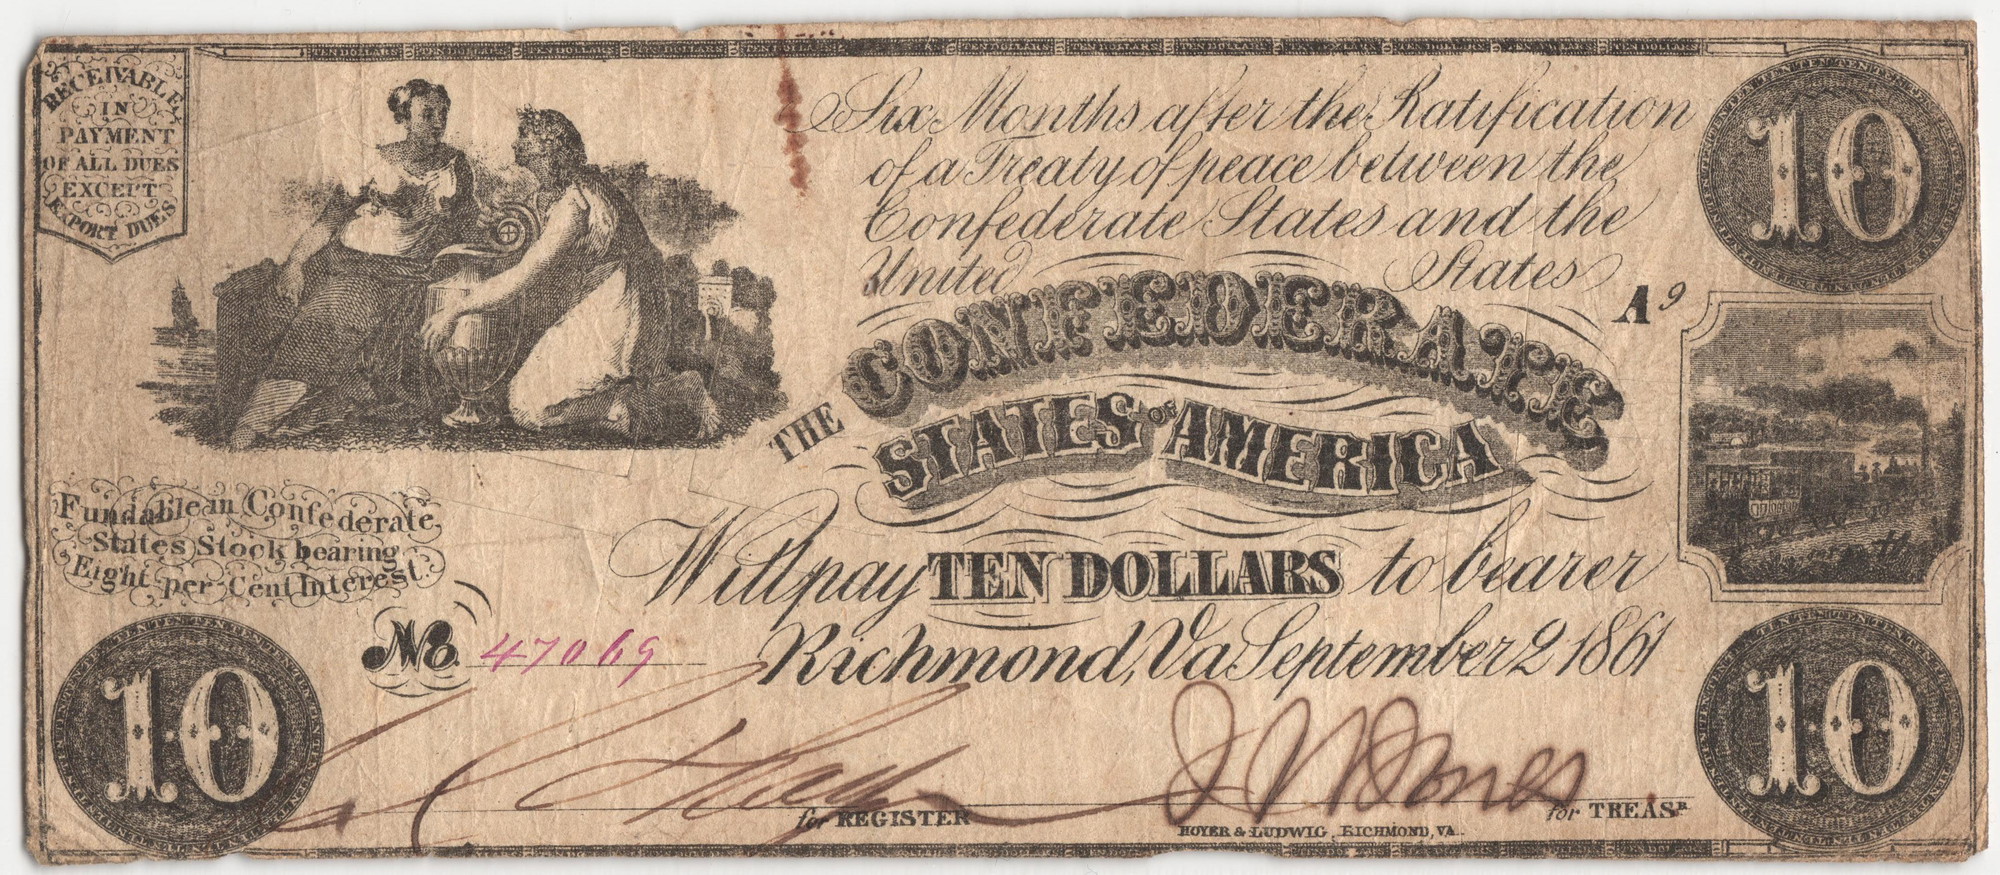 TEN DOLLARS TEN DOLLARS TEN DOLLARS TEN DOLLARS TEN DOLLARS TEN DOLLARS TEN DOLLARS TEN DOLLARS
RECEIVABLE
IN
PAYMENT
OF ALL DUES
EXCEPT
EXPORT DUES
Six Months after the Ratification
of a Treaty of peace between the
Confederate States and the
United States
10
A 9
THE CONFEDERATE
STATES OF AMERICA
Fundable in Confederate
States Stock bearing
Eight per Cent Interest.
Will pay TEN DOLLARS to bearer
No. 47069
Richmond, Va September 2 1861
10
10
J W Jones
for REGISTER
for TREASR.
HOYER & LUDWIG, RICHMOND, VA.